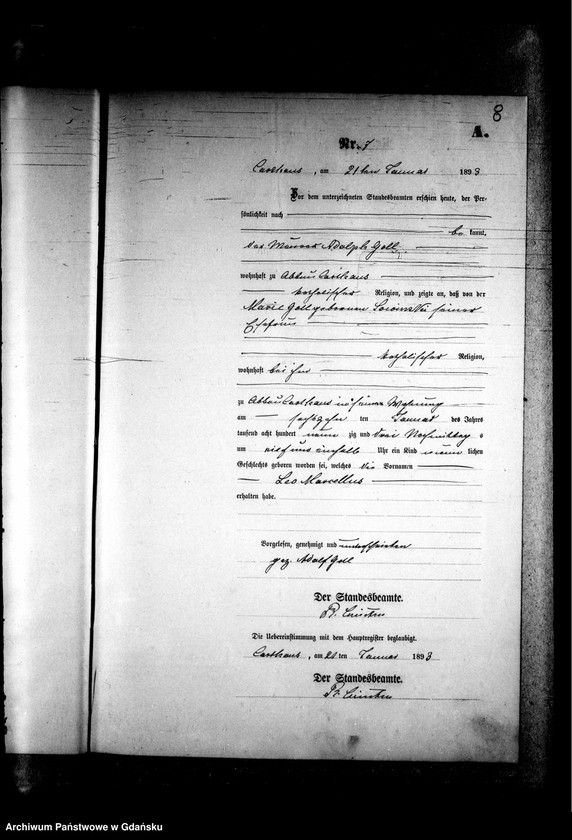 8
A.
Nr. 7
Carthaus, am 21ten Januar 1893
Vor dem unterzeichneten Standesbeamten erschien heute, der Per-
sönlichkeit nach
be kannt,
der Maurer Adolph Goll
wohnhaft zu Abbau Carthaus
katholischer Religion, und zeigte an, daß von der
Marie Goll geborenen seiner
Ehefrau
katholischer Religion,
wohnhaft bei ihm
zu Abbau Carthaus in seiner Wohnung
am sechszehn ten Januar des Jahres
tausend acht hundert neun zig und drei Nachmittag s
um Uhr ein Kind männ lichen
Geschlechts geboren worden sei, welches die Vornamen
Leo Marcellus
erhalten habe.
Vorgelesen, genehmigt und unterschrieben
gez. Adolf Goll
Der Standesbeamte.
Die Uebereinstimmung mit dem Hauptregister beglaubigt.
Carthaus, am 21 ten Januar 1893
Der Standesbeamte.
Archiwum Państwowe w Gdańsku